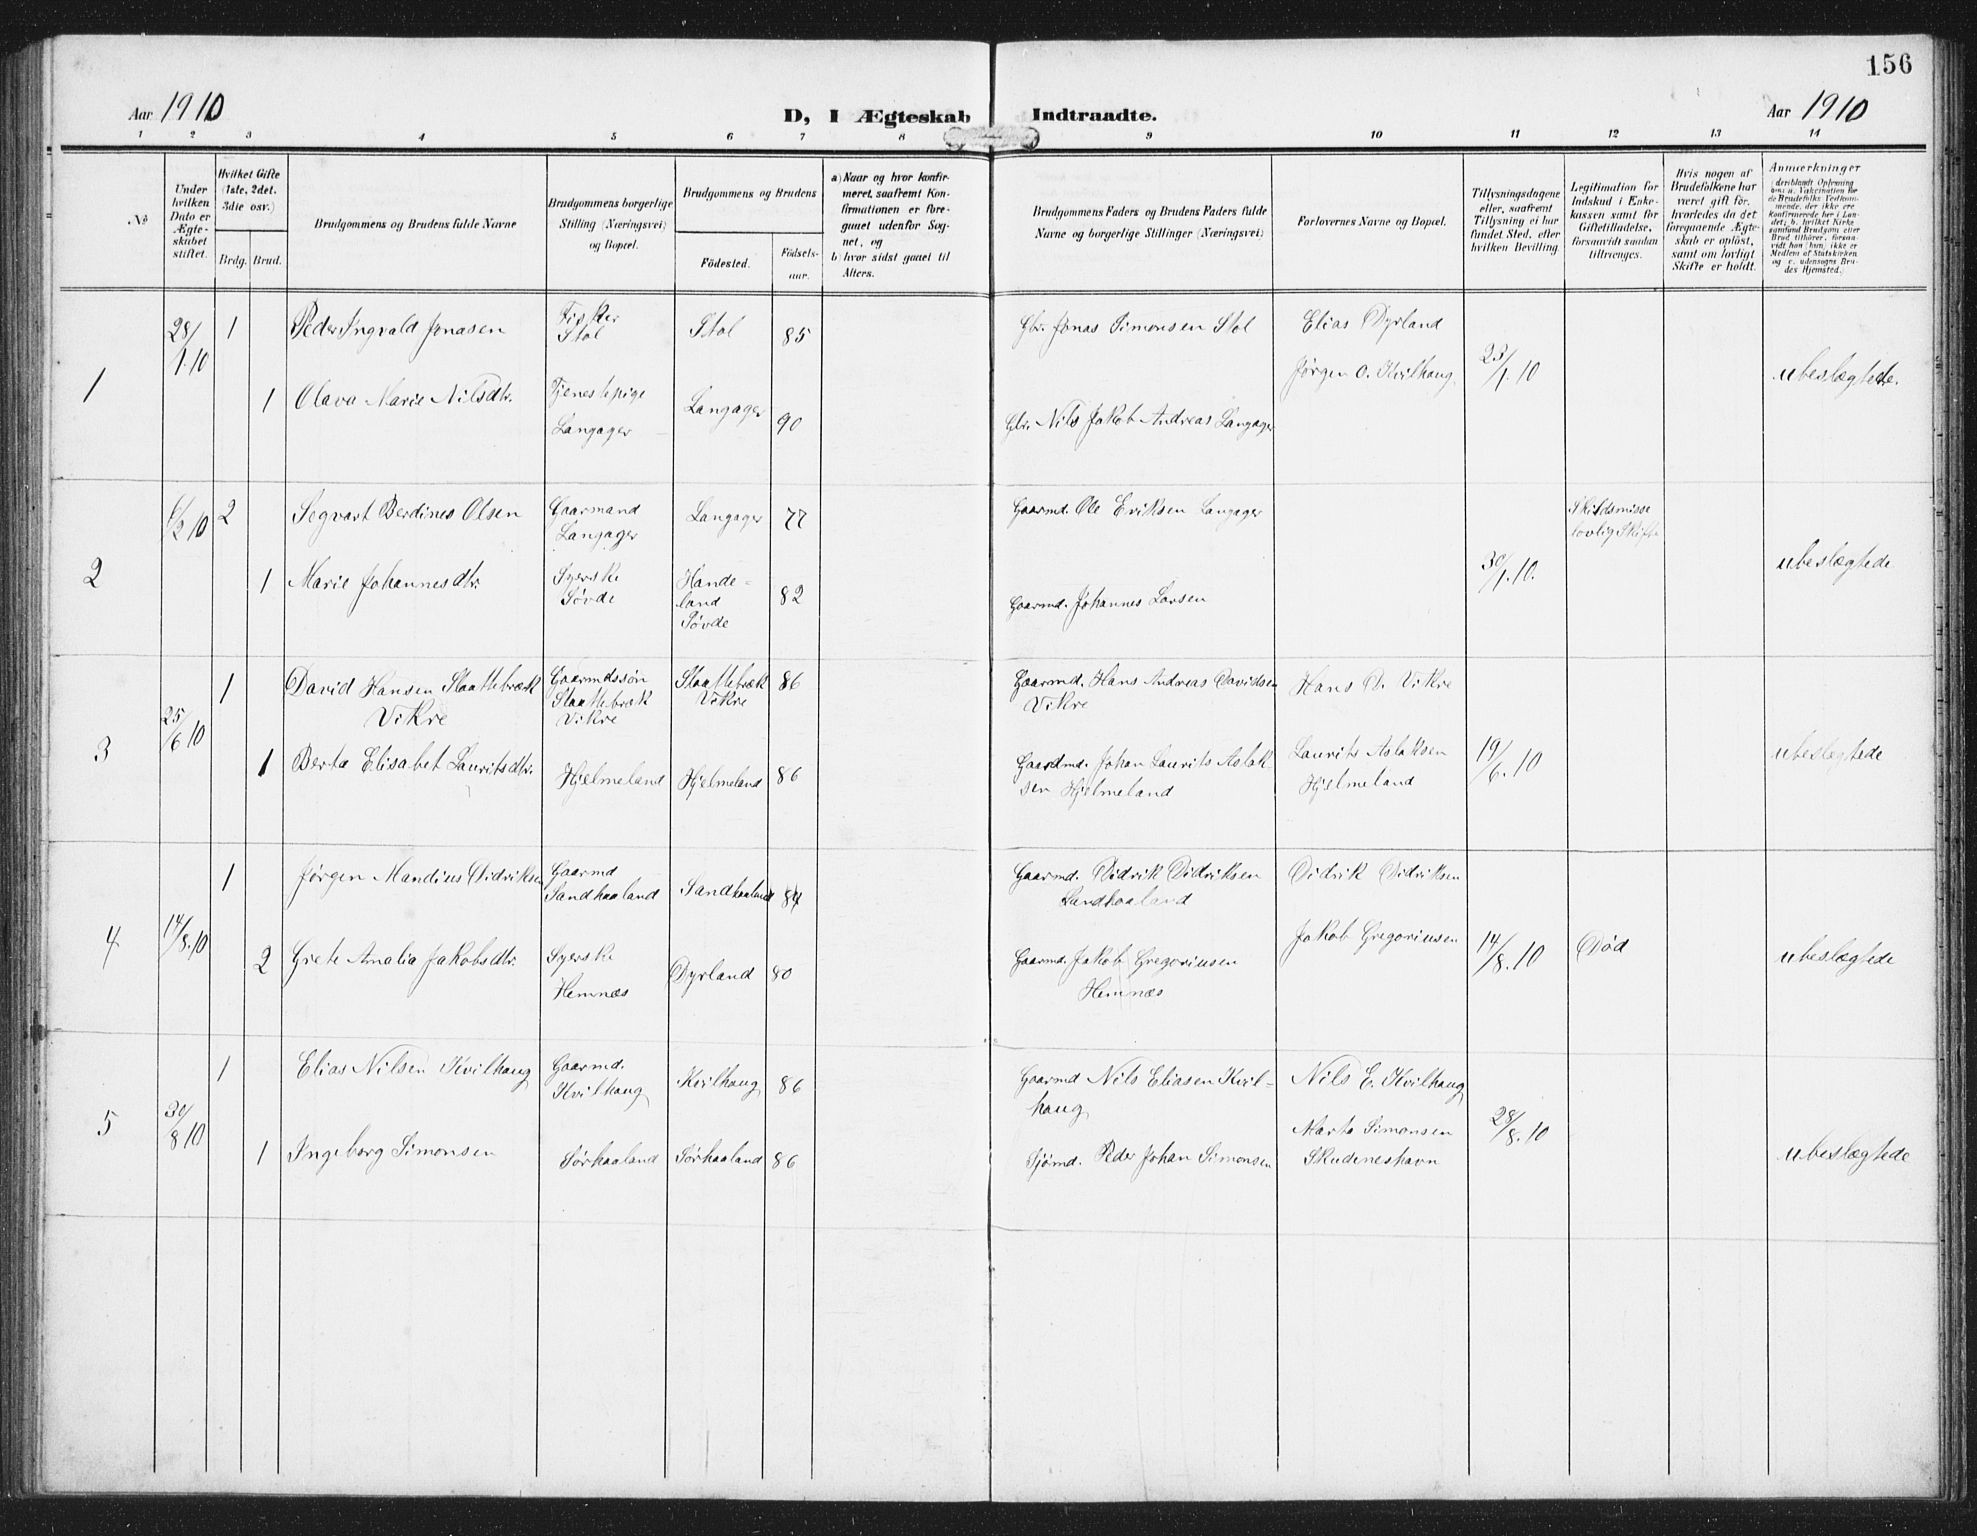 156
Aar 1910
D, I Ægteskab Indtraadte.
Aar 1910
1 2 3 4 5 6 7 8 9 10 11 12 13 14
№
Under
hvilken
Dato er
Ægte-
skabet
stiftet.
Hvilket Gifte
(1ste, 2det,
3die osv.)
Brdg. Brud.
Brudgommens og Brudens fulde Navne
Brudgommens borgerlige
Stilling (Næringsvei)
og Bopæl.
Brudgommens og Brudens
Fødested.
Fødsels-
aar.
a) Naar og hvor konfir-
meret, saafremt Kon-
firmationen er fore-
gaaet udenfor Sog-
net, og
b) hvor sidst gaaet til
Alters.
Brudgommens Faders og Brudens Faders fulde
Navne og borgerlige Stillinger (Næringsvei)
Forlovernes Navne og Bopæl.
Tillysningsdagene
eller, saafremt
Tillysning ei har
fundet Sted, efter
hvilken Bevilling.
Legitimation for
Indskud i Enke-
kassen samt for
Giftetilladelse,
forsaavidt saadan
tiltrænges.
Hvis nogen af
Brudefolkene har
været gift før,
hvorledes da det
foregaaende Ægte-
skab er opløst,
samt om lovligt
Skifte er holdt.
Anmærkninger
(deriblandt Oplysning
om: a. Vakcination for
de Brudefolks Vedkom-
mende, der ikke ere
konfirmerede her i Lan-
det; b. hvilket Kirke-
samfund Brudgom eller
Brud tilhører, forsaa-
vidt han (hun) ikke er
Medlem af Statskirken
og c. udensogns Bru-
des Hjemsted.
1
28/1.10
1
Peder Ingvald Jonasen
Fisker
Stol
Stol
85
Gbr. Jonas Simonsen Stol
Elias Dyrland
Jørgen O. Kvilhaug
23/1.10
ubeslægtede.
1
Olava Marie Nilsdtr.
Tjenestepige
Langager
Langager
90
Gbr. Nils Jakob Andreas Langager
2
6/2 10
2
Segvart Berdines Olsen
Gaarmand
Langager
Langager
77
Gaarmd. Ole Eriksen Langager
30/1.10.
Skildsmisse
lovlig Skifte
ubeslægtede
1
Marie Johannesdtr.
Syerske
Søvde
Hande-
land
Søvde
82
Gaarmd. Johannes Larsen
3
25/6 10
1
David Hansen Slaattebræk
Vikre
Gaarmdssøn
Slaattebræk
Vikre
Slaattebræk
Vikre
86
Gaarmd. Hans Andreas Davidsen
Vikre
Hans D. Vikre
19/6.10
ubeslegtede
1
Berta Elisabet Lauritsdtr.
Hjelmeland
Hjelmeland
86
Gaardmd. Johan Laurits Aslak-
sen Hjelmeland
Laurits Aslaksen
Hjelmeland
4
14/8.10
1
Jørgen Mandius Didriksen
Gaarmd
Sandhaaland
Sandhaaland
84
Gaarmd. Didrik Didriksen
Sandhaaland
Didrik Didriksen
14/8.10
Død
ubeslægtede
2
Grete Amalia Jakobsdtr.
Syerske
Hemnæs
Dyrland
80
Gaarmd. Jakob Gregoriusen
Hemnæs
Jakob Gregoriusen
5
30/8 10
1
Elias Nilsen Kvilhaug
Gaarmd.
Kvilhaug
Kvilhaug
86
Gaarmd Nils Eliasen Kvil-
haug
Nils E. Kvilhaug
28/8.10
ubeslægtede
1
Ingeborg Simonsen
Sørhaaland
Sørhaaland
86
Sjømd. Peder Johan Simonsen
Marta Simonsen
Skudeneshavn